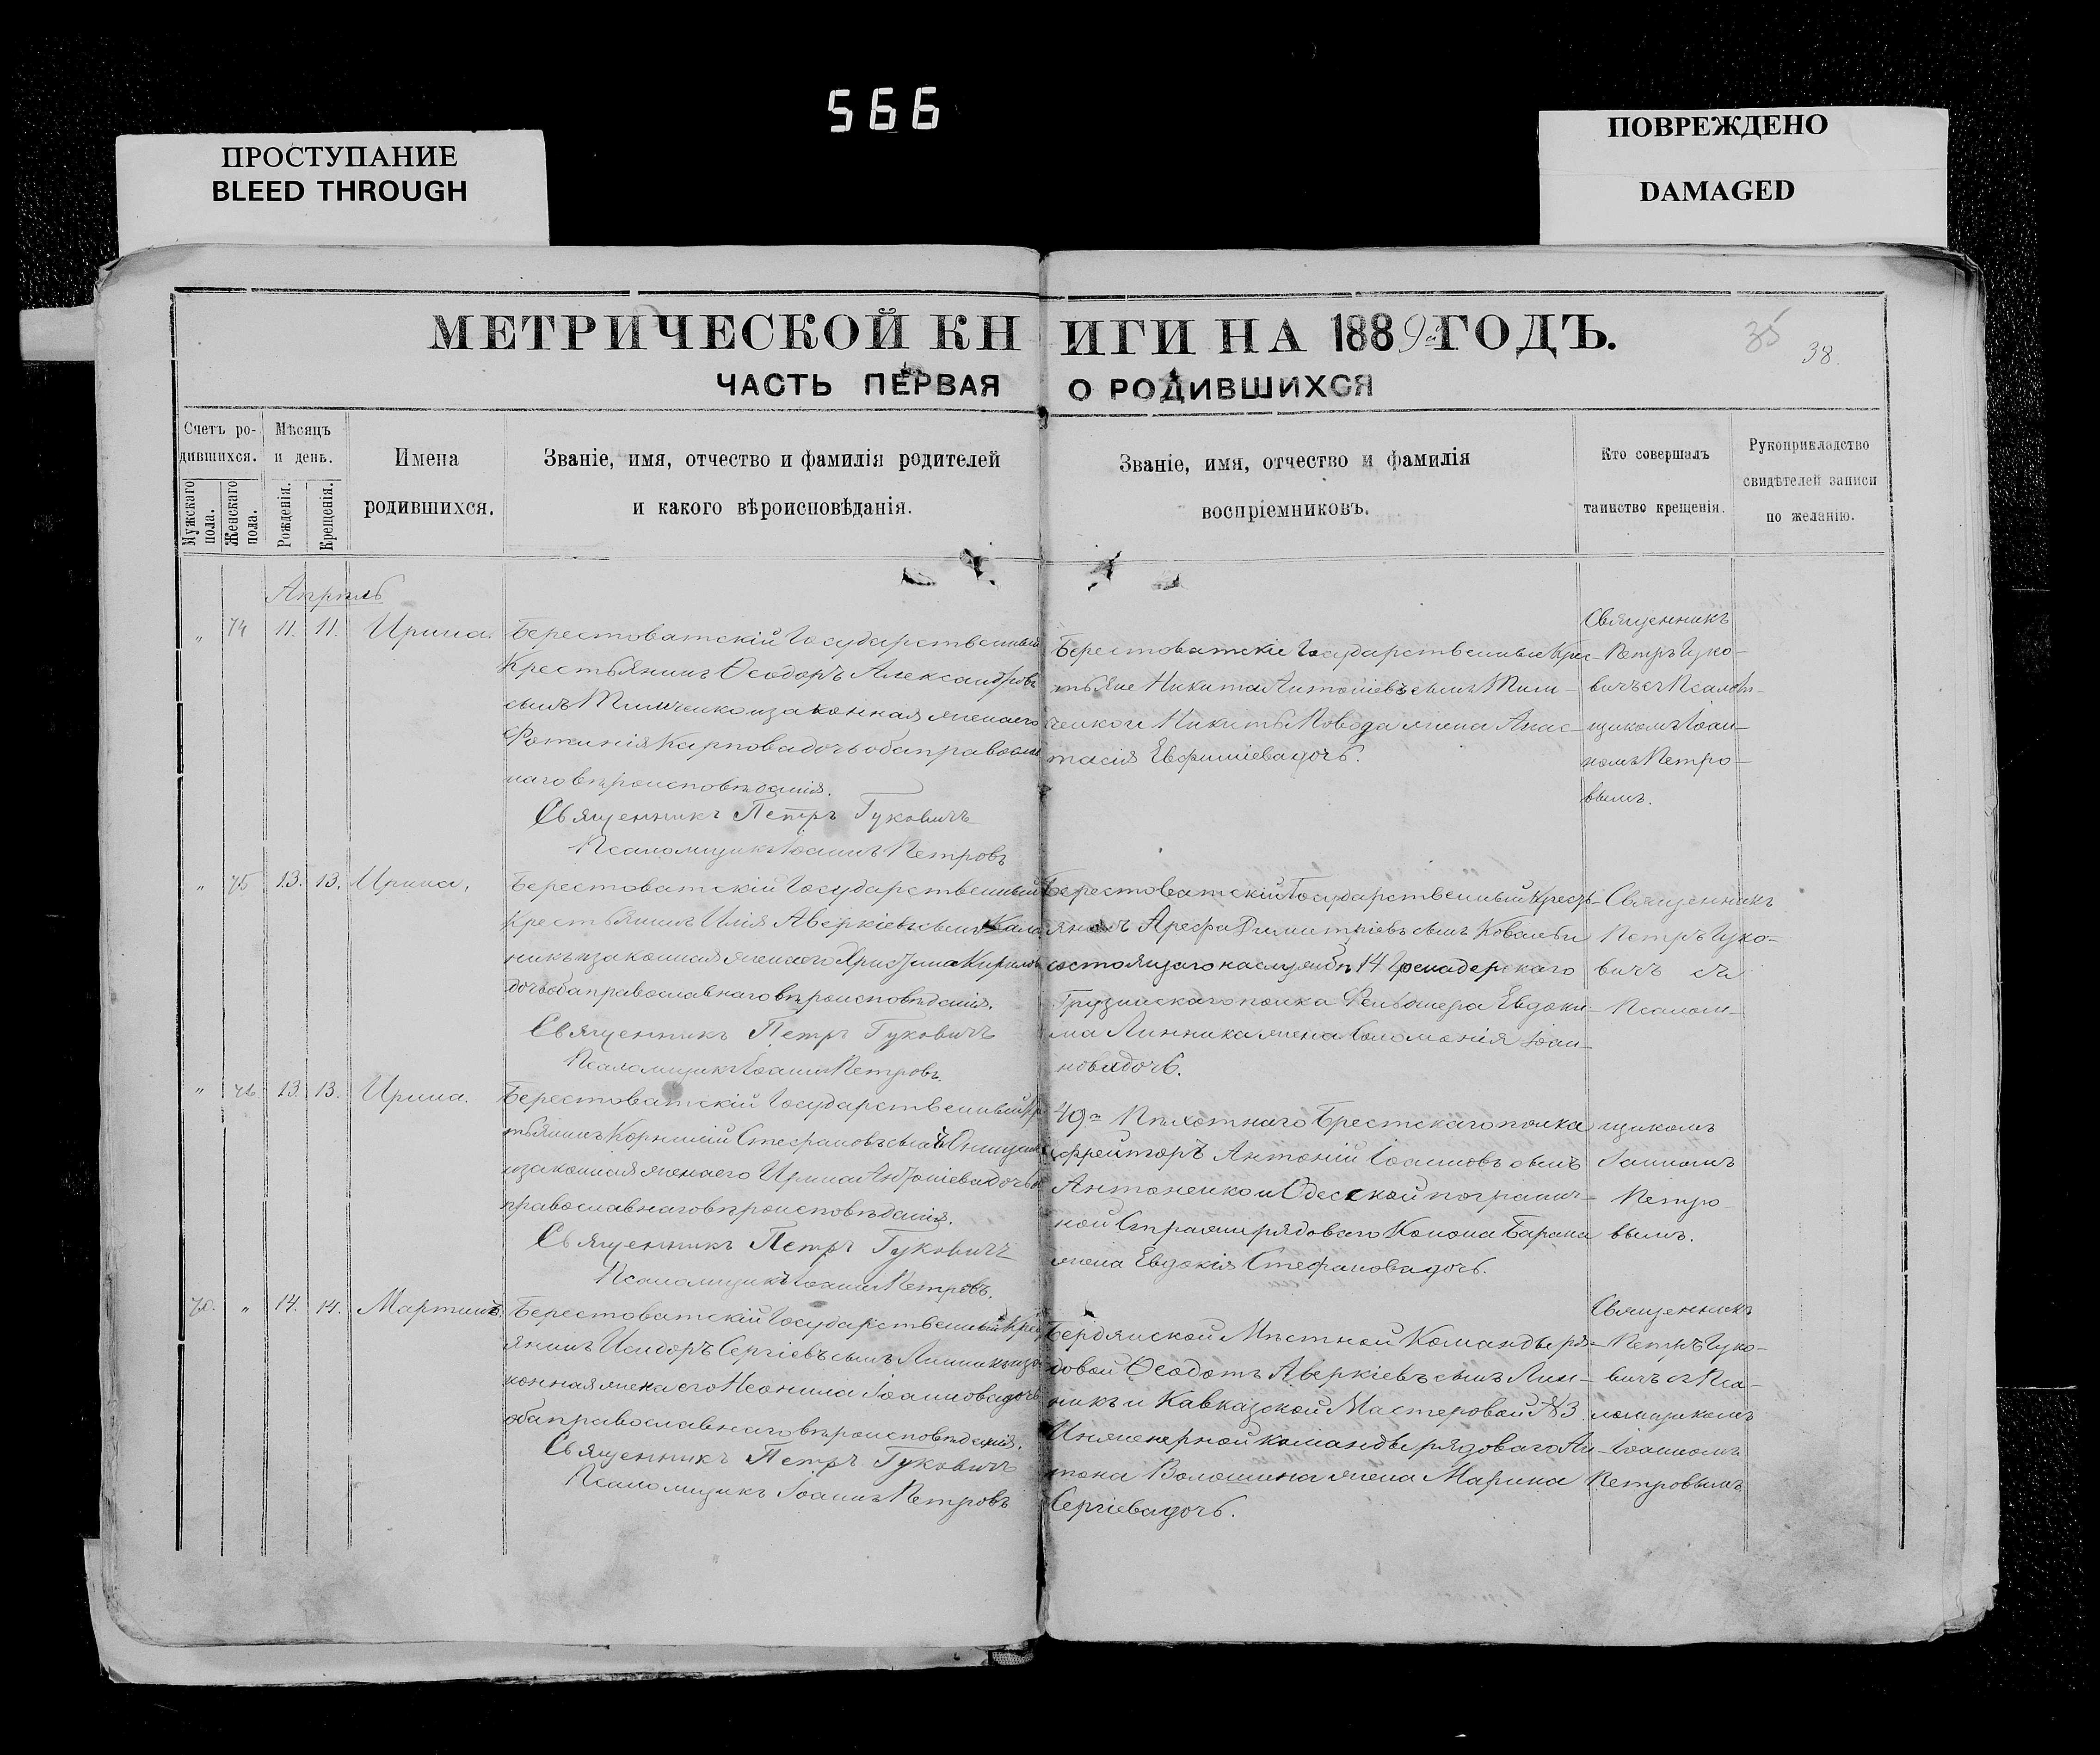 566
ПРОСТУПАНИЕ
BLEED THROUGH
ПОВРЕЖДЕНО
DAMAGED
МЕТРИЧЕСКОЙ КНИГИ НА 1889й ГОДЪ.
35
38.
ЧАСТЬ ПЕРВАЯ О РОДИВШИХСЯ
Счетъ ро-
дившихся.
Мужскаго пола.
Женскаго пола.
Мѣсяцъ
и день.
Рожденія.
Крещенія.
Имена
родившихся.
Званіе, имя, отчество и фамилія родителей
и какого вѣроисповѣданія.
Званіе, имя, отчество и фамилія
воспріемниковъ.
Кто совершалъ
таинство крещенія.
Рукоприкладство
свидѣтелей записи
по желанію.
Апрѣль
" 74 11. 11. Ирина.
Берестоватскій Государственный
Крестьянинъ Ѳеодоръ Александровъ
сынъ Тимченко и законная жена его
Фотинія Карпова дочь оба православ
наго вѣроисповѣданія.
Священникъ Петръ Гуковичъ
Псаломщикъ Іоаннъ Петровъ
Берестоватскіе Государственные Кре-
стьяне Никита Антоніевъ сынъ Тим-
ченко и Никиты Повода жена Анас-
тасія Евфиміева дочь.
Священникъ
Петръ Гуко-
вичъ съ Псалом-
щикомъ Іоан-
номъ Петро-
вымъ.
" 75 13. 13. Ирина.
Берестоватскій Государственный
Крестьянинъ Илія Аверкіевъ сынъ
никъ и законная жена его Христина Кирилов
дочь оба православнаго вѣроисповѣданія.
Священникъ Петръ Гуковичъ
Псаломщикъ Іоаннъ Петровъ.
Берестоватскій Государственный Кресть-
янинъ Арефа Димитріевъ сынъ Коваль и
состоящаго на службѣ 14 Гренадерскаго
Грузинскаго полка Фельдшера Евдоки-
ма Линника жена Соломонія Іоан-
нова дочь.
Священникъ
Петръ Гуко-
вичъ съ
Псалом-
" 76 13. 13. Ирина.
Берестоватскій Государственный Кр
стьянинъ Корнилій Стефановъ сынъ
и законная жена его Ирина Антоніева дочь
православнаго вѣроисповѣданія.
Священникъ Петръ Гуковичъ
Псаломщикъ Іоаннъ Петровъ.
49го Пѣхотнаго Брестскаго полка
Ефрейторъ Антоній Іоанновъ сынъ
Антоненко и Одесской погранич-
ной Стражи рядоваго Конона Барана
жена Евдокія Стефанова дочь.
щикомъ
Іоанномъ
Петро-
вымъ.
70. " 14. 14. Мартинъ.
Берестоватскій Государственный Крест
янинъ Исидоръ Сергіевъ сынъ Линникъ и за
конная жена его Неонила Іоаннова дочь
оба православнаго вѣроисповѣданія.
Священникъ Петръ Гуковичъ
Псаломщикъ Іоаннъ Петровъ
Бердянской Мѣстной Команды ря-
довой Ѳеодотъ Аверкіевъ сынъ Лин-
никъ и Кавказской Мастеровой №3
Инженерной команды рядоваго Ан-
тона Волошина жена Марина
Сергіева дочь.
Священникъ
Петръ Гуко-
вичъ съ Пса-
ломщикомъ
Іоанномъ
Петровымъ